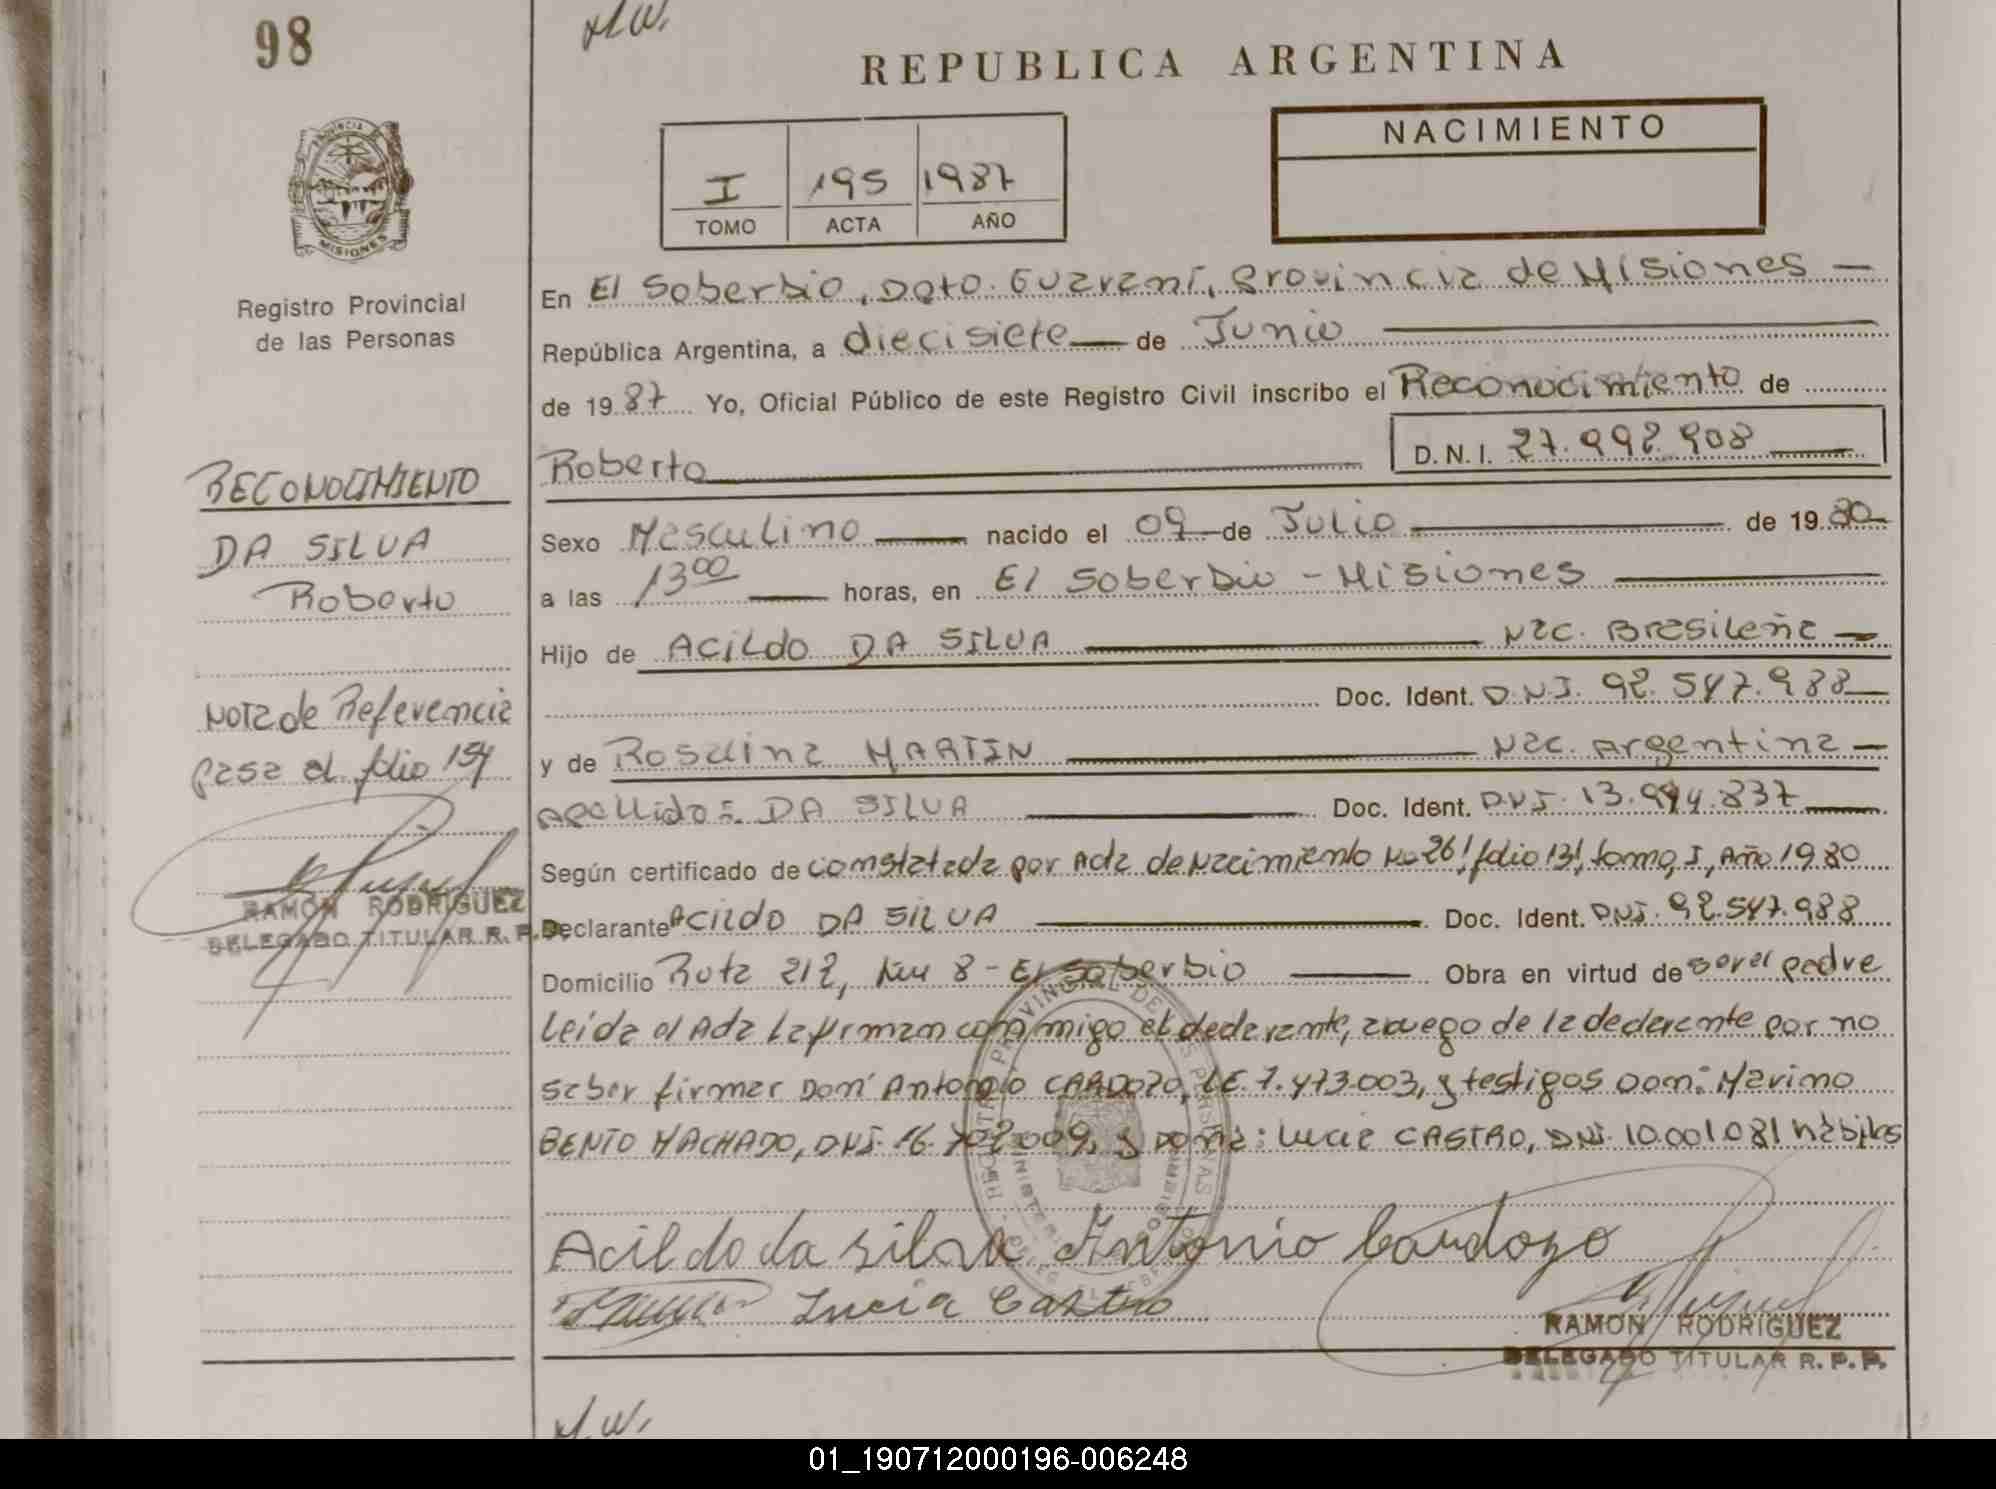 98
REPUBLICA ARGENTINA
NACIMIENTO
I 195 1987
TOMO ACTA AÑO
PROVINCIA
MISIONES
Registro Provincial
de las Personas
En El Soberbio, Dpto. Guaraní, Provincia de Misiones —
República Argentina, a diecisiete — de Junio
de 1987 Yo, Oficial Público de este Registro Civil inscribo el Reconocimiento de
Roberto D.N.I. 27.992.908
Sexo Masculino — nacido el 09 de Julio — de 1980
a las 13 00 — horas, en El Soberbio - Misiones
Hijo de Acildo DA SILVA — Nac. Brasileña —
Doc. Ident. D.N.I. 92.547.988
y de Rosalina MARTIN — Nac. Argentina —
Apellido: DA SILVA — Doc. Ident. DNI. 13.994.837
Según certificado de constatada por Acta de Nacimiento No 261 folio 131, tomo, I, Año 1980
Declarante Acildo DA SILVA — Doc. Ident. DNI. 92.547.988
Domicilio Ruta 212, Km 8 - El Soberbio — Obra en virtud de ser el padre
leida el Acta la firman conmigo el declarante, a ruego de la declarante por no
saber firmar Don Antonio CARDOZO, LE. 7.473.003, y testigos Don: Marino
BENTO MACHADO, DNI. 16.702.009, y Doña: Lucia CASTRO, DNI. 10.001.081 hábiles
Acildo da Silva Antonio Cardozo
Lucia Castro
RAMON RODRIGUEZ
DELEGADO TITULAR R.P.P.
RECONOCIMIENTO
DA SILVA
Roberto
Nota de Referencia
pasa al folio 154
RAMON RODRIGUEZ
DELEGADO TITULAR R.P.P.
01_190712000196-006248